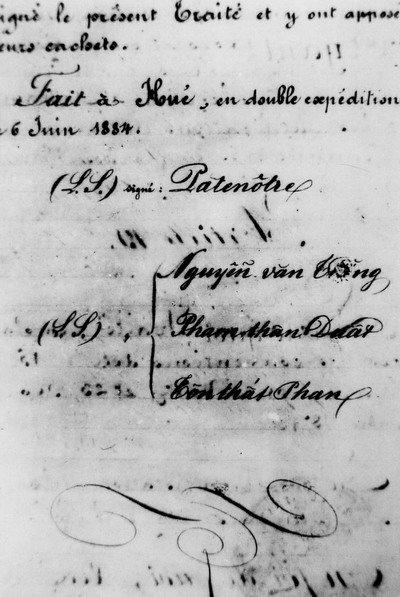 signé le présent Traité et y ont apposé
leurs cachets.
Fait à Hué, en double expédition
6 Juin 1884.
(L.S.) signé: Patenôtre
Nguyễn văn Tường
(L.S.)
Pham thân Duat
Tôn thất Phan